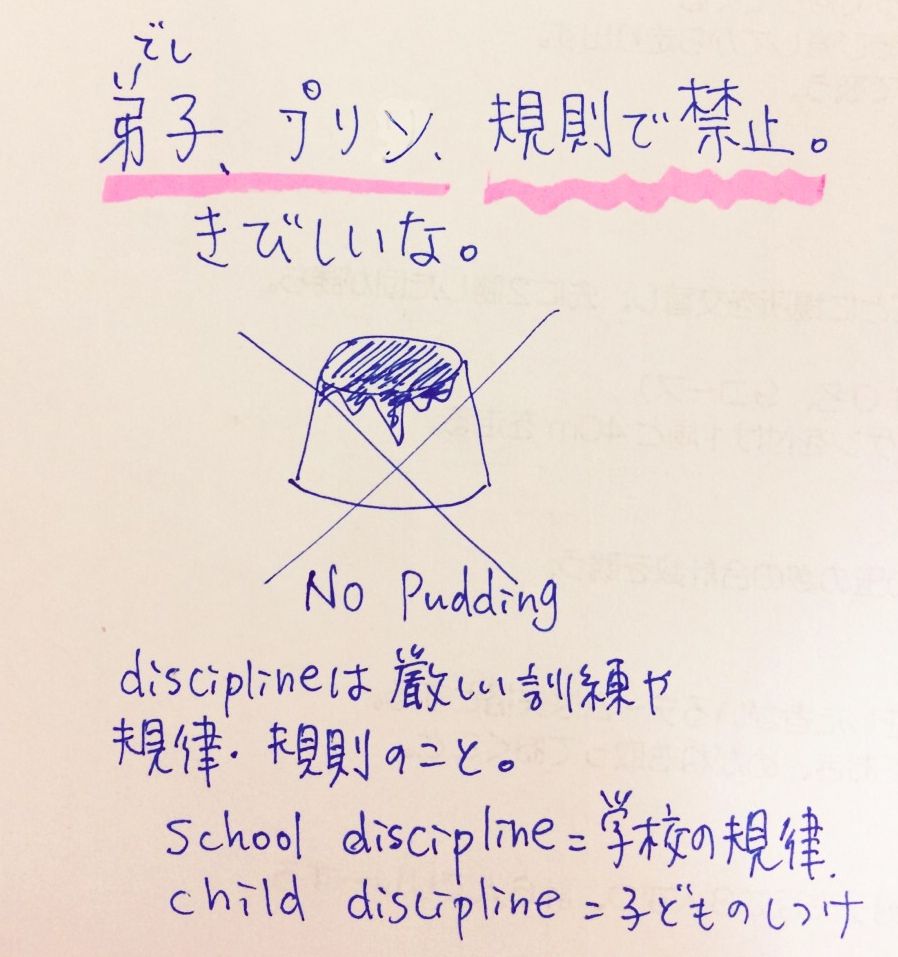 でし
弟子、プリン、規則で禁止。
きびしいな。
No Pudding
disciplineは厳しい訓練や
規律・規則のこと。
School discipline=学校の規律.
child discipline=子どものしつけ